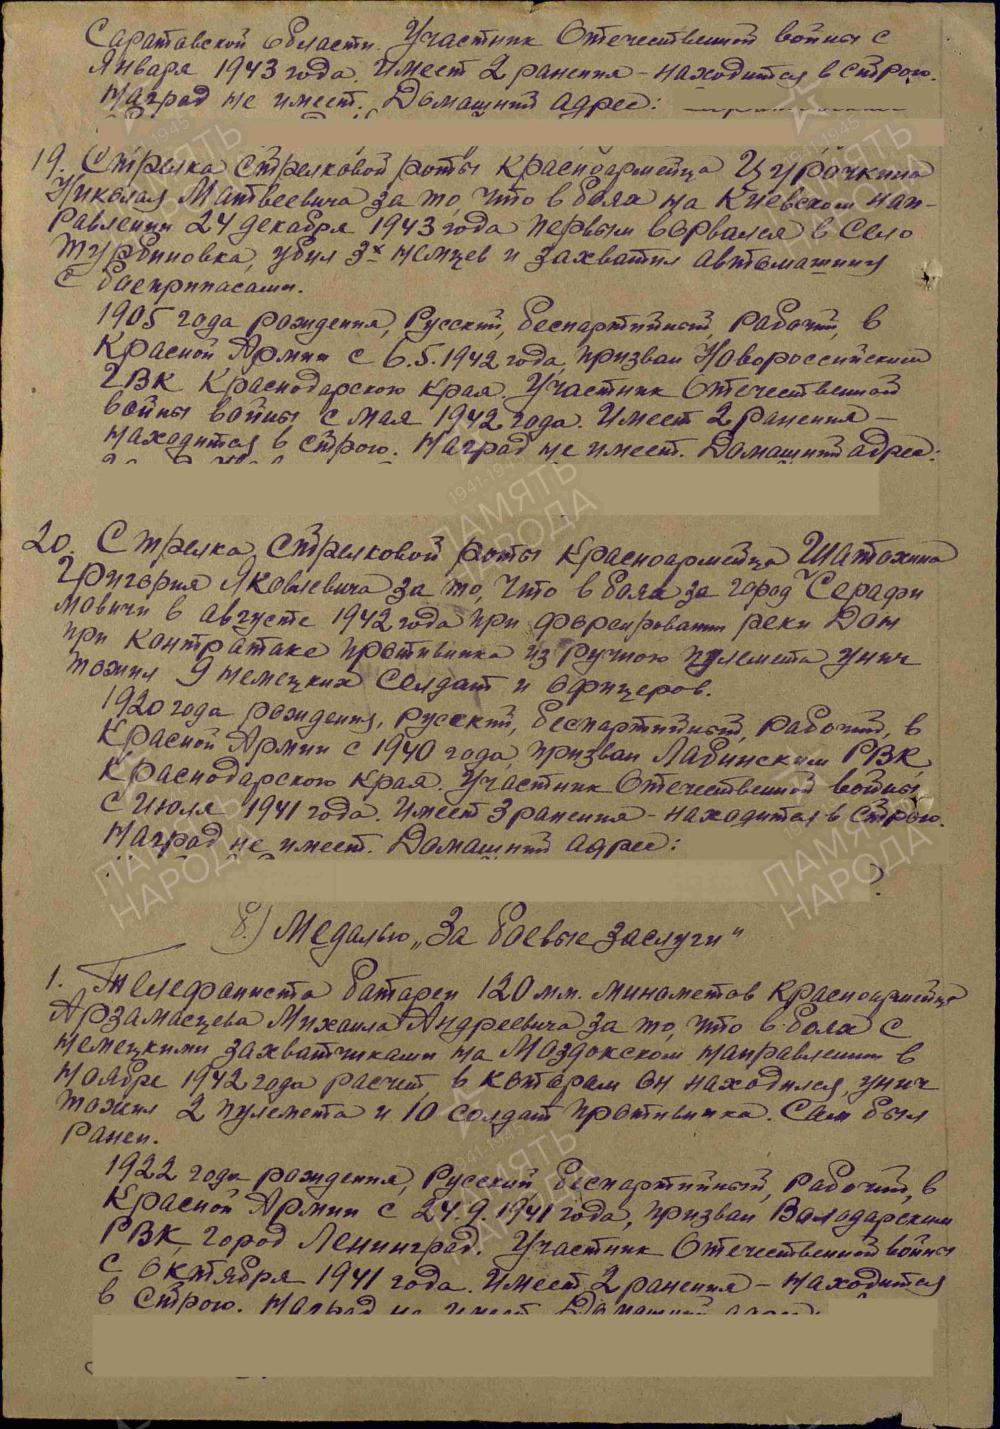 Саратовской области. Участник Отечественной войны с
Января 1943 года. Имеет 2 ранения – находится в строю.
Наград не имеет. Домашний адрес:
19. Стрелка стрелковой роты красноармейца Цурочкина
Николая Матвеевича за то, что в боях на Киевском нап-
равлении 24 декабря 1943 года первым ворвался в село
Турбиновка, убил 3х немцев и захватил автомашину
с боеприпасами.
1905 года рождения, Русский, беспартийный, рабочий, в
Красной Армии с 6.5.1942 года, призван Новороссийским
ГВК Краснодарского края. Участник Отечественной
войны войны с мая 1942 года. Имеет 2 ранения –
находится в строю. Наград не имеет. Домашний адрес:
20. Стрелка стрелковой роты красноармейца Шатохина
Григория Яковлевича за то, что в боях за город Серафи
мовичи в августе 1942 года при форсировании реки Дон
при контратаке противника из ручного пулемета унич
тожил 9 немецких солдат и офицеров.
1920 года рождения, русский, беспартийный, рабочий, в
Красной Армии с 1940 года, призван Лабинским РВК
Краснодарского края. Участник Отечественной войны
с Июля 1941 года. Имеет 3 ранения – находится в строю.
Наград не имеет. Домашний адрес:
Медалью „За боевые заслуги"
1. Телефониста батареи 120 мм. минометов красноармейца
Арзамасцева Михаила Андреевича за то, что в боях с
немецкими захватчиками на Моздокском направлении в
ноябре 1942 года расчет, в котором он находился, унич
тожил 2 пулемета и 10 солдат противника. Сам был
ранен.
1922 года рождения, Русский, беспартийный, рабочий, в
Красной Армии с 24.9.1941 года, призван Володарским
РВК, город Ленинград. Участник Отечественной войны
с октября 1941 года. Имеет 2 ранения – находится
в строю. Наград не имеет. Домашний адрес:
ПАМЯТЬ
НАРОДА
1941-1945